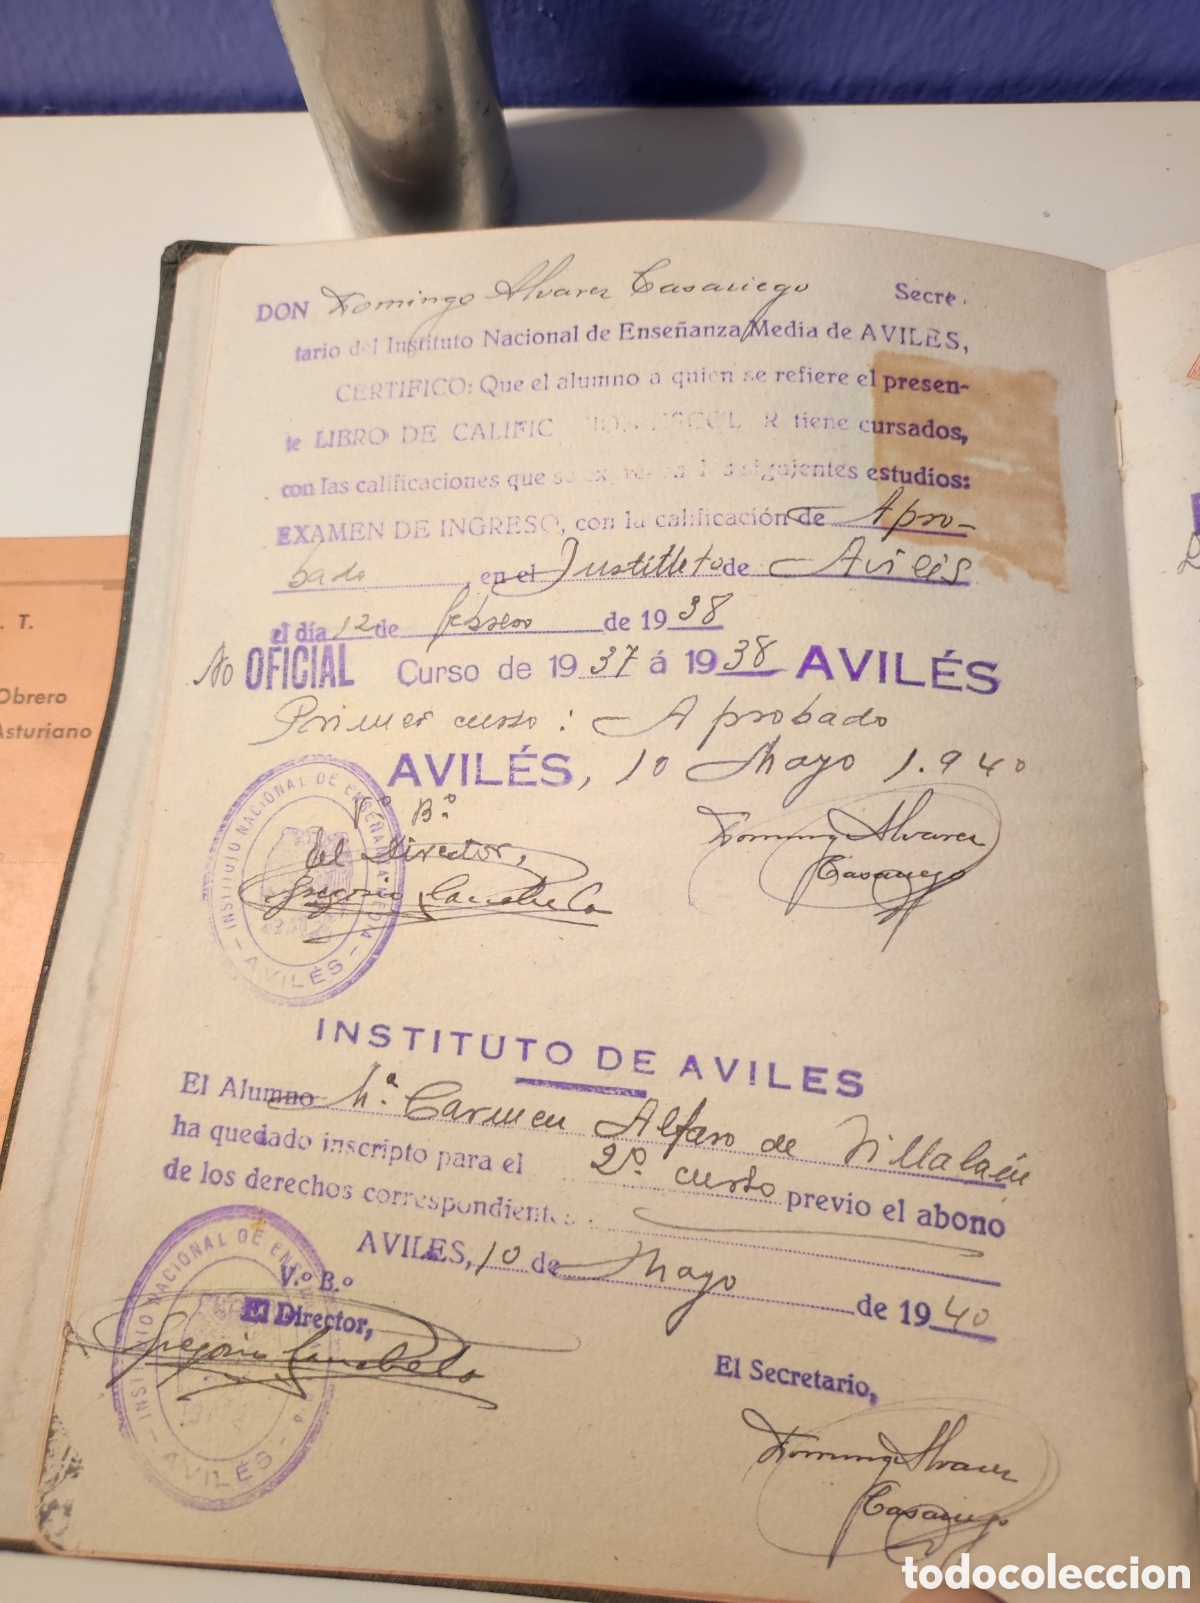 DON Domingo Alvarez Casariego Secre-
tario del Instituto Nacional de Enseñanza Media de AVILES,
CERTIFICO: Que el alumno a quien se refiere el presen-
te LIBRO DE CALIFIC tiene cursados,
con las calificaciones que se siguientes estudios:
EXAMEN DE INGRESO, con la calificación de Apro-
bado, en el Instituto de Avilés
el día 12 de febrero de 1938
No OFICIAL Curso de 1937 á 1938 AVILÉS
Primer curso: Aprobado
AVILÉS, 10 Mayo 1.940
V.º B.º
El Director,
Domingo Alvarez
Casariego
Gregorio
INSTITUTO NACIONAL DE ENSEÑANZA MEDIA
- AVILÉS -
INSTITUTO DE AVILES
El Alumno Mª Carmen Alfaro de Villalaín
ha quedado inscripto para el 2º curso previo el abono
de los derechos correspondientes.
AVILES, 10 de Mayo de 1940
V.º B.º
El Director,
Gregorio
NACIONAL DE
AVILÉS
El Secretario,
Domingo Alvarez
Casariego
. T.
Obrero
Asturiano
todocoleccion